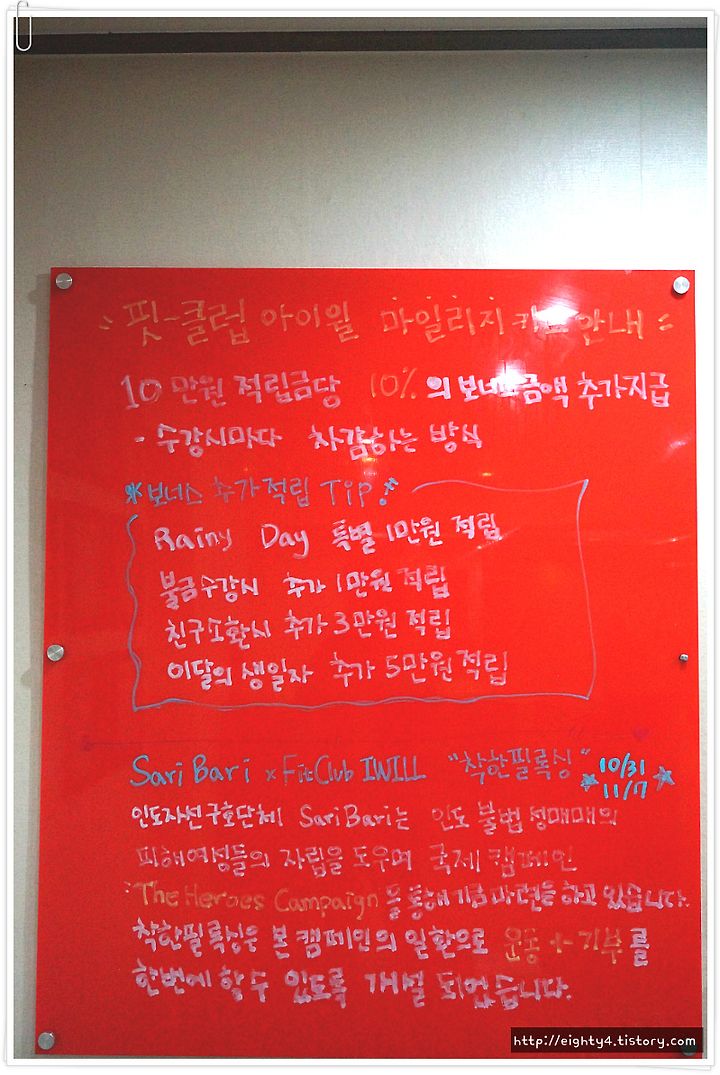 핏-클럽 아이윌 마일리지 카드 안내
10만원 적립금당 10%의 보너스금액 추가지급
- 수강시마다 차감하는 방식
*보너스 추가적립 TiP!*
Rainy Day 특별 1만원 적립
불금수강시 추가 1만원 적립
친구소환시 추가 3만원 적립
이달의 생일자 추가 5만원 적립
Sari Bari x FitClub IWILL "착한필록싱" 10/31
11/7
인도자선구호단체 Sari Bari는 인도 불법 성매매의
피해여성들의 자립을 도우며 국제 캠페인
"The Heroes Campaign"을 통해 기금마련을 하고 있습니다.
착한필록싱은 본 캠페인의 일환으로 운동+기부를
한번에 할 수 있도록 개설 되었습니다.
http://eighty4.tistory.com